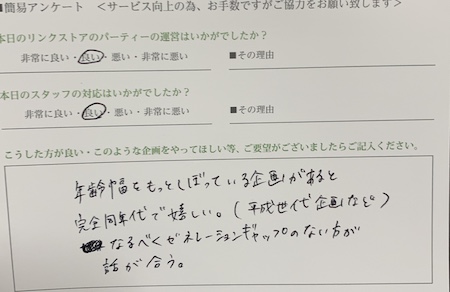 ■簡易アンケート ＜サービス向上の為、お手数ですがご協力をお願い致します＞
本日のリンクストアのパーティーの運営はいかがでしたか？
非常に良い・良い・悪い・非常に悪い ■その理由
本日のスタッフの対応はいかがでしたか？
非常に良い・良い・悪い・非常に悪い ■その理由
こうした方が良い・このような企画をやってほしい等、ご要望がございましたらご記入ください。
年齢幅をもっとしぼっている企画があると
完全同年代で嬉しい。（平成世代企画など）
なるべくゼネレーションギャップのない方が
話が合う。